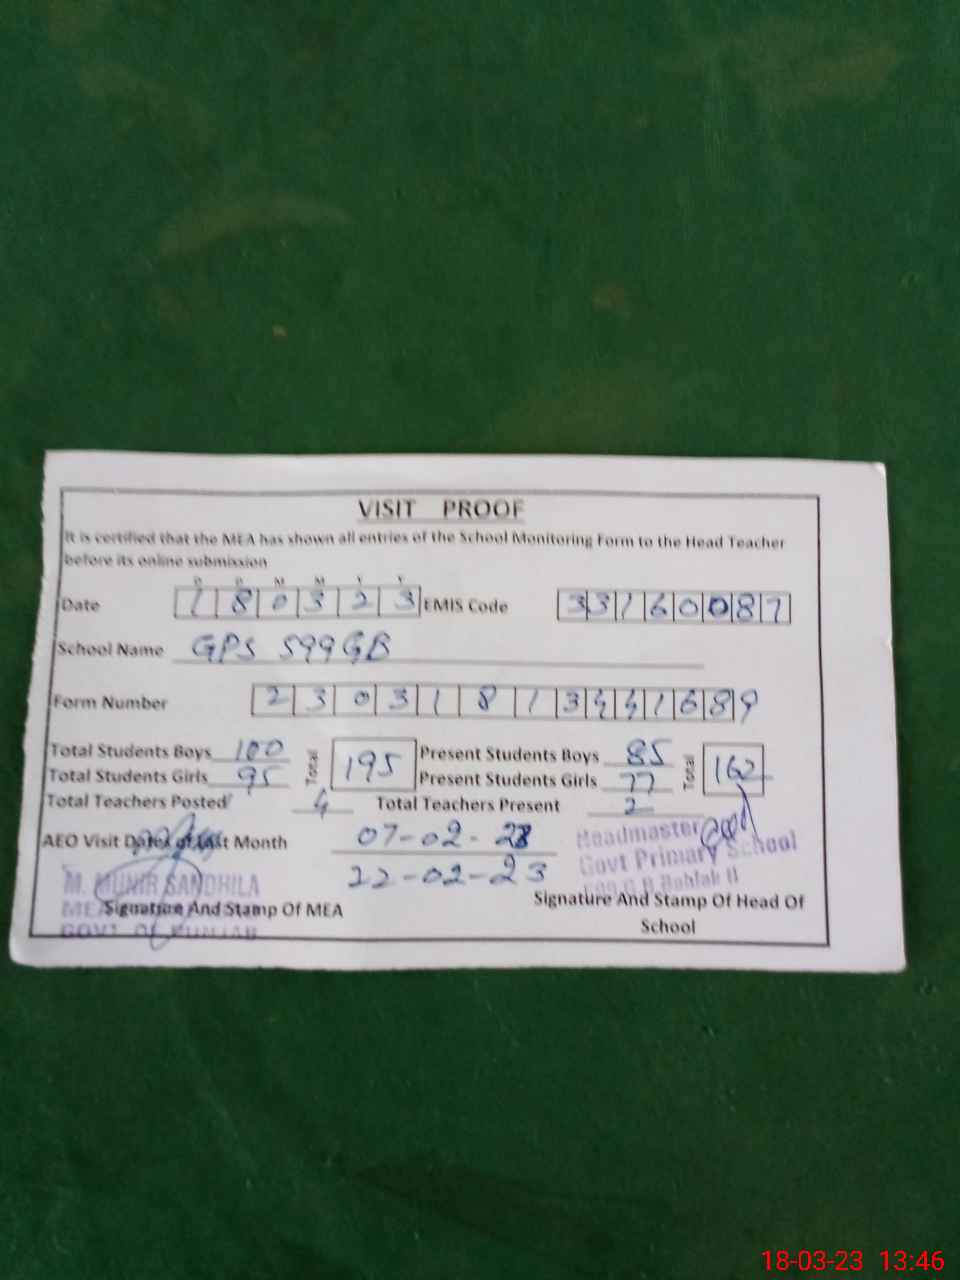 VISIT PROOF
It is certified that the MEA has shown all entries of the School Monitoring Form to the Head Teacher
before its online submission
D D M M Y Y
Date 180323 EMIS Code 33160087
School Name GPS 599 GB
Form Number 23031813441689
Total Students Boys 100 Total 195 Present Students Boys 85 Total 162
Total Students Girls 95 Present Students Girls 77
Total Teachers Posted 4 Total Teachers Present 2
AEO Visit Dates of Last Month 07-02-23
22-02-23
Headmaster
Govt Primary School
M. MUNIR SANDHILA
MEA
GOVT. OF PUNJAB
Signature And Stamp Of MEA
Signature And Stamp Of Head Of
School
18-03-23 13:46